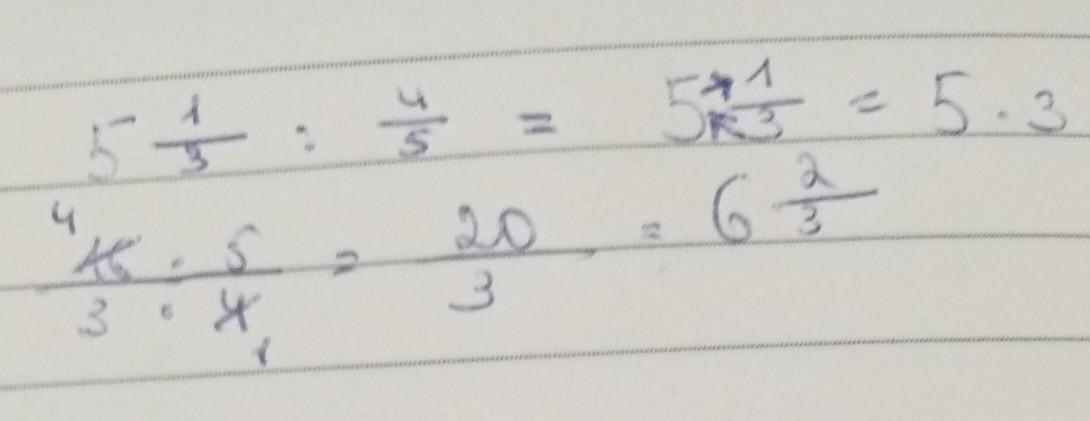 5 1/3 : 4/5 = 5 1/3 = 5 · 3
4 16 · 5 / 3 · 4 1 = 20/3 = 6 2/3